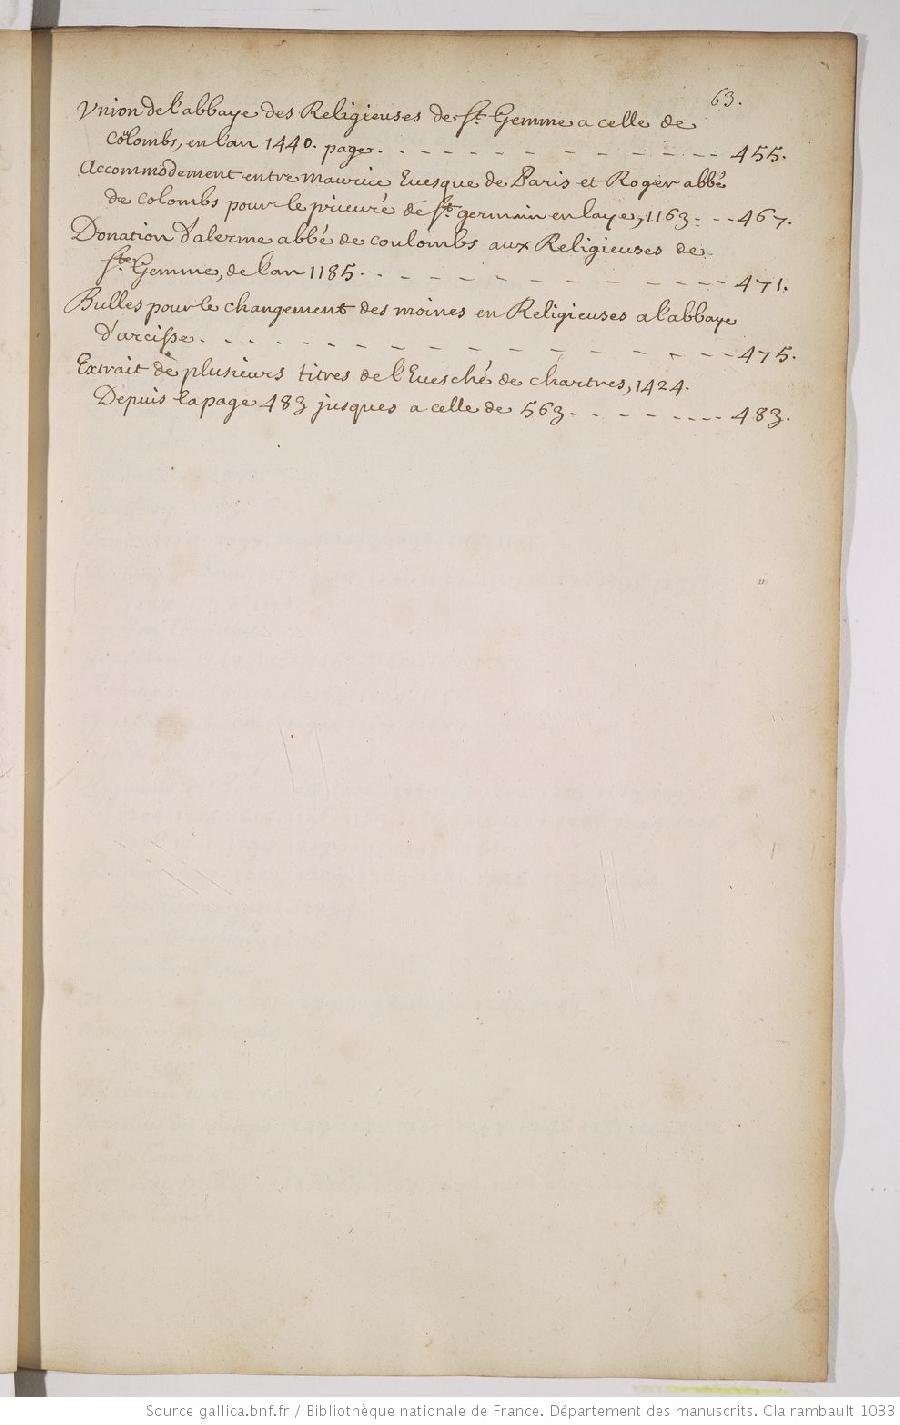 63.
Vnion de l'abbaye des Religieuses de St. Gemme a celle de
Colombs, en l'an 1440. page. - - - - - - - - - - - 455.
Accommodement entre Maurice Euesque de Paris et Roger abbé
de Colombs pour le prieuré de St. germain en laye, 1163. - - 467.
Donation d'alerme abbé de coulombs aux Religieuses de
Ste. Gemme, de l'an 1185. - - - - - - - - - - - 471.
Bulles pour le changement des moines en Religieuses a l'abbaye
d'arcisse. - - - - - - - - - - - - - - - - 475.
Extrait de plusieurs titres de l'Euesché de chartres, 1424.
Depuis la page 483 jusques a celle de 563. - - - - - - - 483.
Source gallica.bnf.fr / Bibliothèque nationale de France. Département des manuscrits. Clairambault 1033